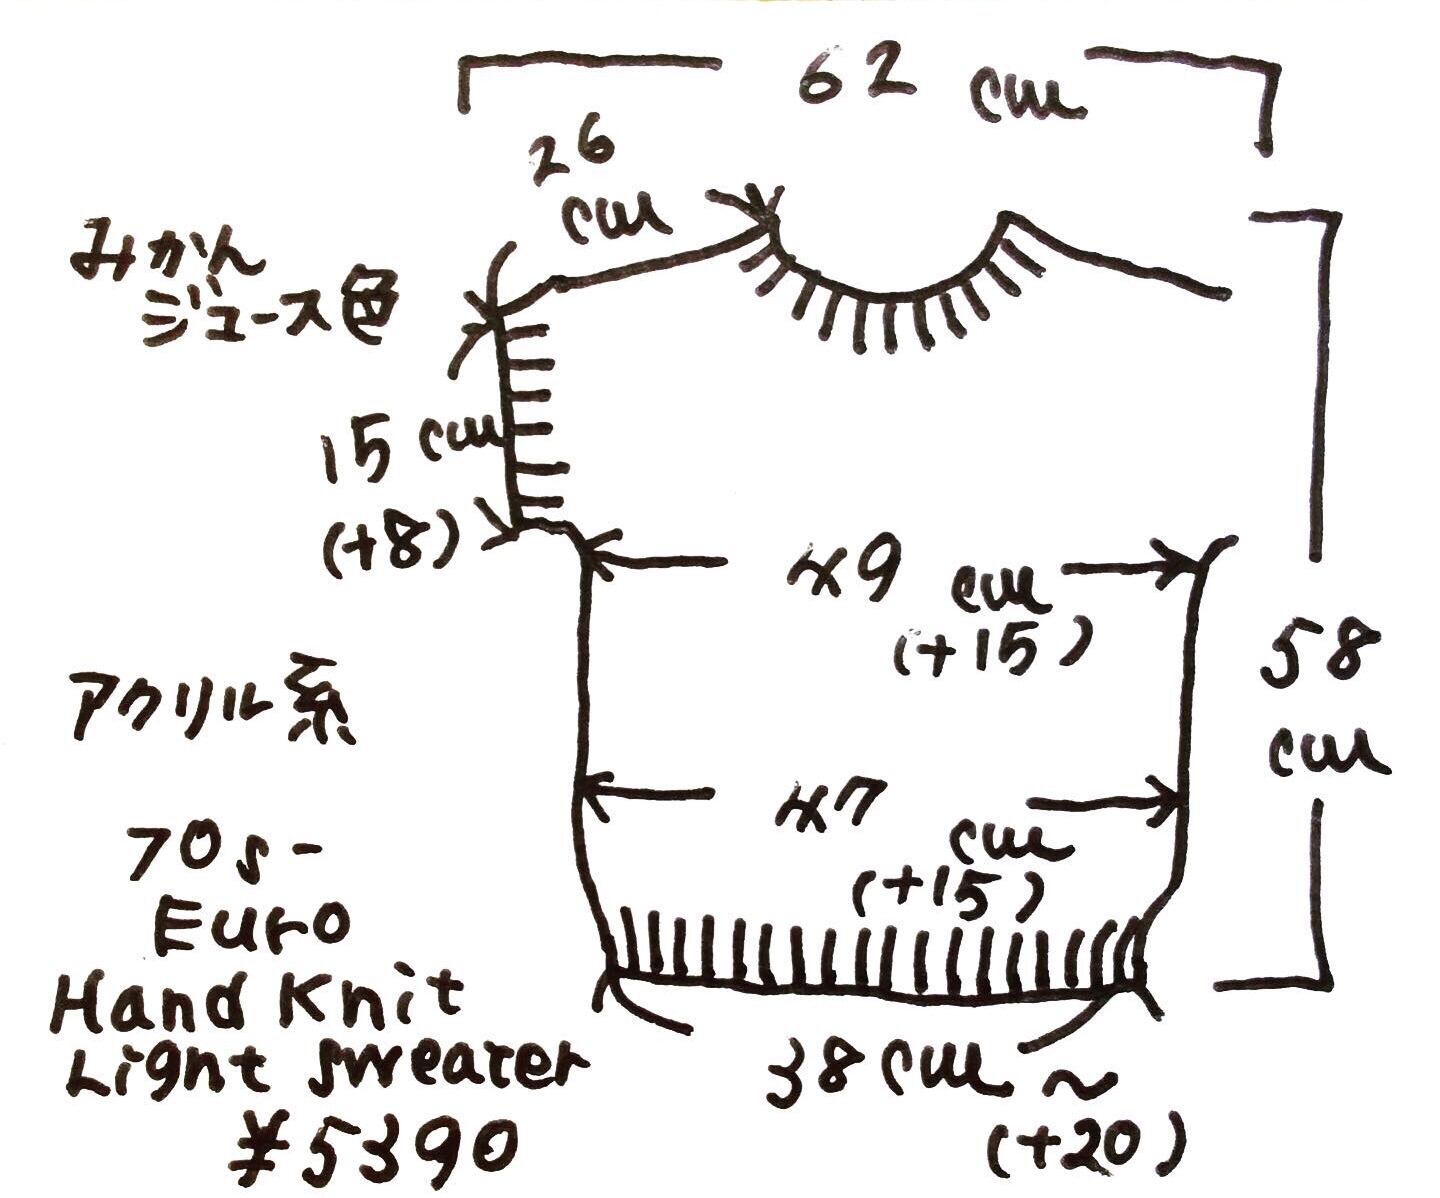 62 cm
26
cm
みかん
ジュース色
15 cm
(+8)
49 cm
(+15)
58
cm
アクリル系
47
cm
(+15)
70s-
Euro
Hand Knit
Light sweater
¥5390
38cm~
(+20)